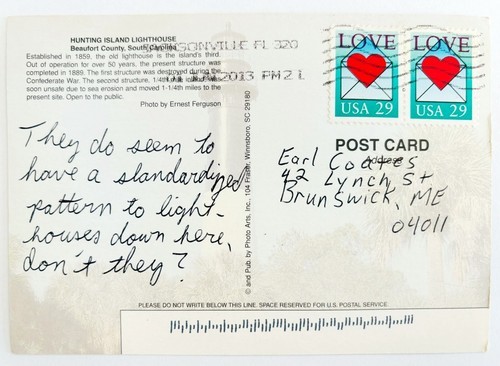 HUNTING ISLAND LIGHTHOUSE
Beaufort County, South Carolina
Established in 1859, the old lighthouse is the island's third.
Out of operation for over 50 years, the present structure was
completed in 1889. The first structure was destroyed during the
Confederate War. The second structure, 1/4th mile
soon unsafe due to sea erosion and moved 1-1/4th miles to the
present site. Open to the public.
Photo by Ernest Ferguson
JACKSONVILLE FL 320
2013 PM 2 L
LOVE
USA 29
LOVE
USA 29
They do seem to
have a standardized
pattern to light-
houses down here,
don't they?
© and Pub. by Photo Arts, Inc., 104 Frazier, Winnsboro, SC 29180
POST CARD
Address
Earl Coates
42 Lynch St
Brunswick, ME
04011
PLEASE DO NOT WRITE BELOW THIS LINE. SPACE RESERVED FOR U.S. POSTAL SERVICE.